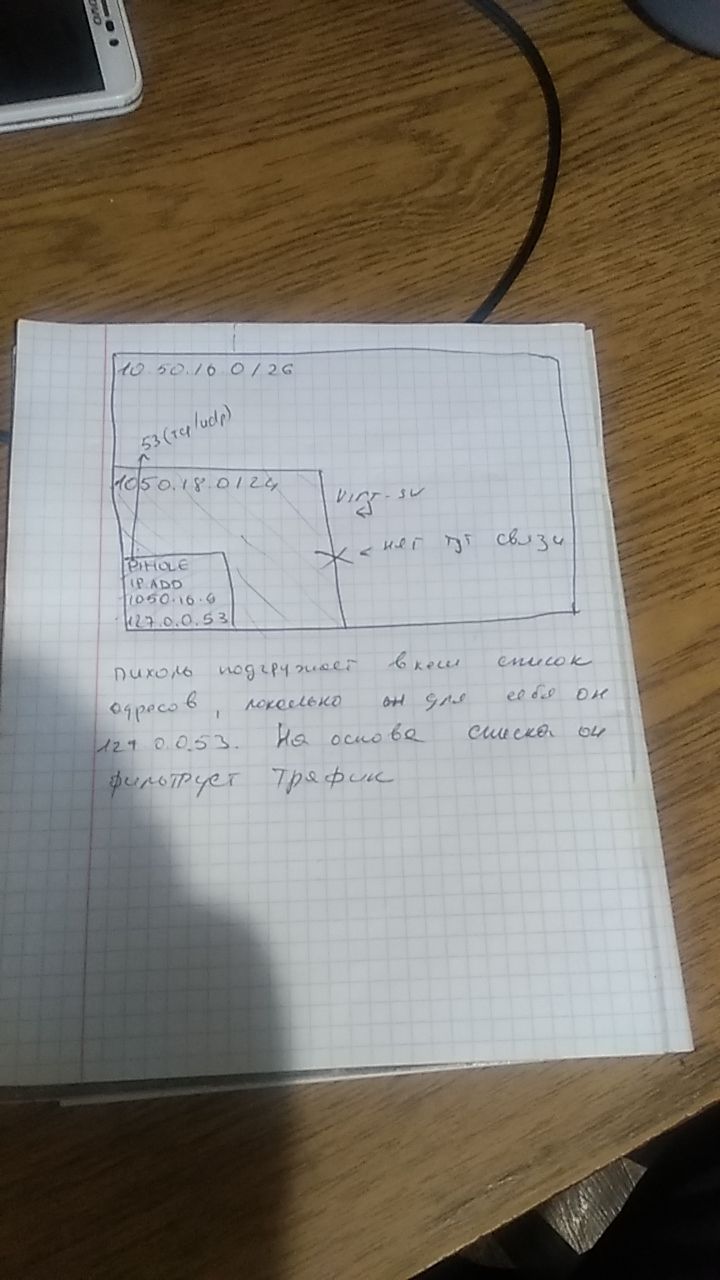 10.50.16.0/26
53(тср/udp)
1050.18.0/24
Virt-sw
< нет тут связи
PIHOLE
IP ADD
1050.16.6
127.0.0.53
пихоль подгружает в кеш список
адресов, локально он для себя он
127.0.0.53. На основа списка он
фильтрует трафик